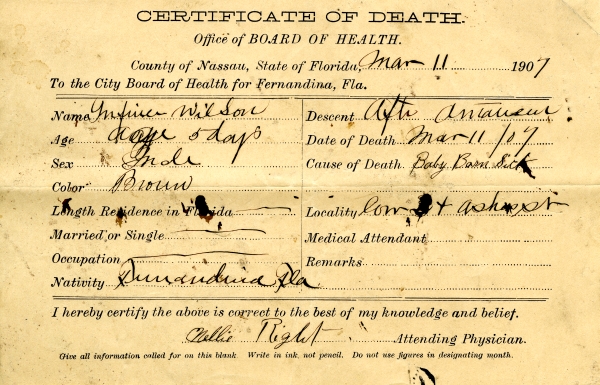 CERTIFICATE OF DEATH.
Office of BOARD OF HEALTH.
County of Nassau, State of Florida, Mar 11 1907
To the City Board of Health for Fernandina, Fla.
Name Wilson
Descent Afr American
Age 5 days
Date of Death Mar 11/07
Sex Male
Cause of Death Baby Born Sick
Color Brown
Length Residence in Florida
Locality & Ash st
Married or Single
Medical Attendant
Occupation
Remarks
Nativity Fla
I hereby certify the above is correct to the best of my knowledge and belief.
Nellie Right Attending Physician.
Give all information called for on this blank. Write in ink, not pencil. Do not use figures in designating month.